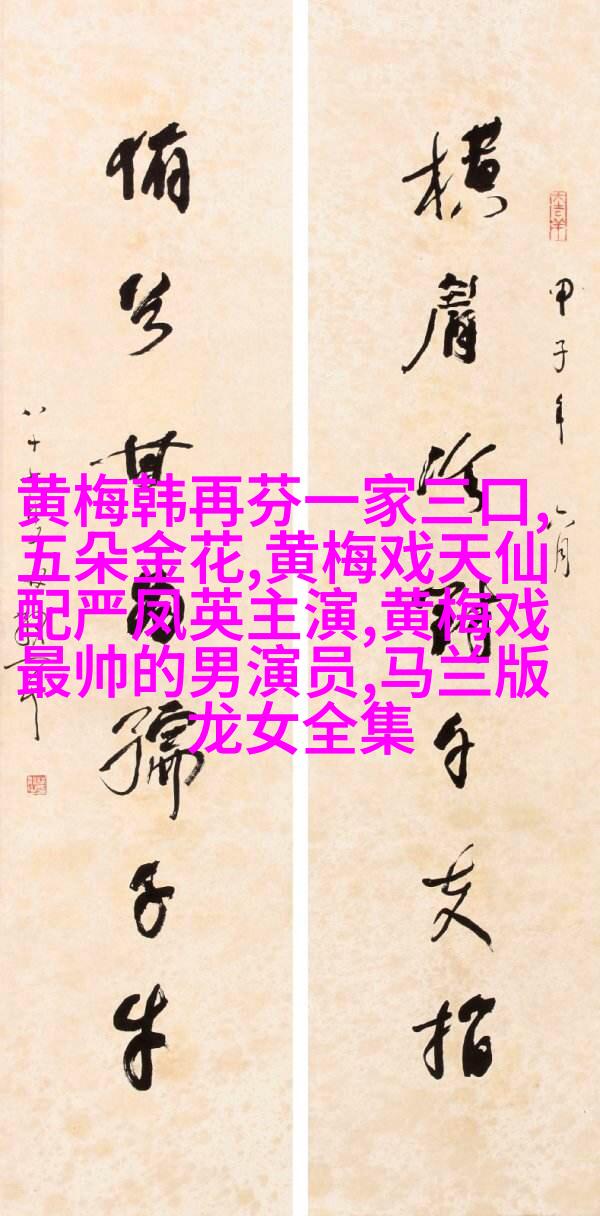 橫眉冷對千夫指
甲子年
俯首甘為孺子牛
黄梅韩再芬一家三口,
五朵金花,黄梅戏天仙
配严凤英主演,黄梅戏
最帅的男演员,马兰版
龙女全集